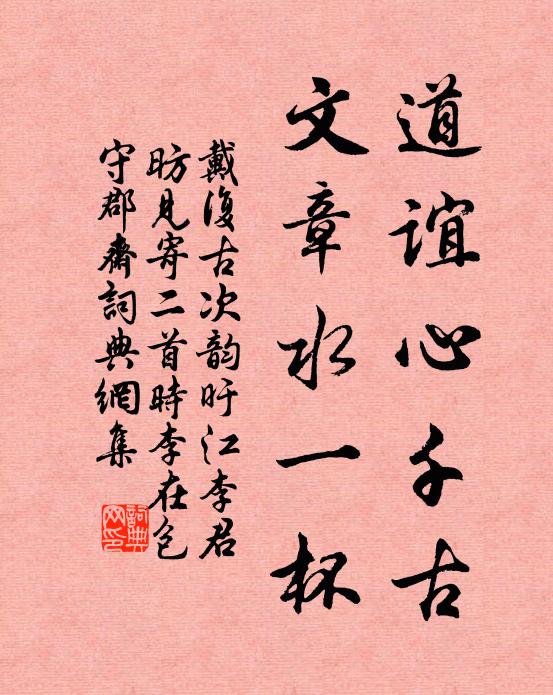 道誼心千古
文章水一杯
戴復古次韵旴江李君
昉見寄二首時李在包
守郡齋詞典網集
詞典網印